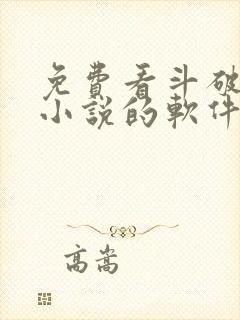 免費看斗破
小說的軟件
高嵩